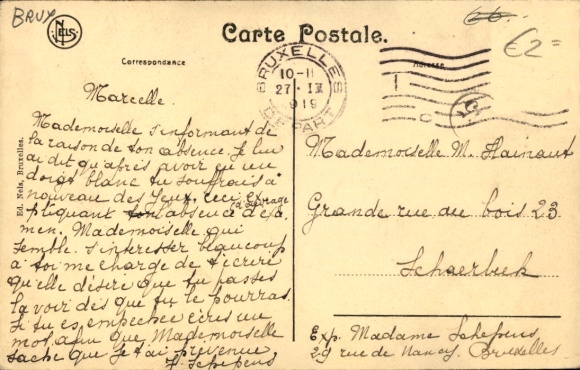 BRUX
NELS
Carte Postale.
26.
€2=
Correspondance
Adresse
BRUXELLES
10-11
27 · IX
1919
DEPART
Ed. Nels, Bruxelles.
Marcelle.
Mademoiselle s'informant de
la raison de ton absence. Je lui
ai dit qu'après avoir eu un
doigt blanc tu souffrais à
nouveau des yeux, ceci ex
pliquant ton absence d'exa
men. Mademoiselle qui
semble s'interesser beaucoup
à toi me charge de t'ecrire
qu'elle désire que tu passes
la voir dès que tu le pourras.
Si tu es empechée écris un
mot afin que Mademoiselle
sache que je t'ai prévenue
F. Schepens
Mademoiselle M. Hainaut
Grande rue du bois 23
Schaerbeek
Exp. Madame Schepens
29 rue de Nancy. Bruxelles